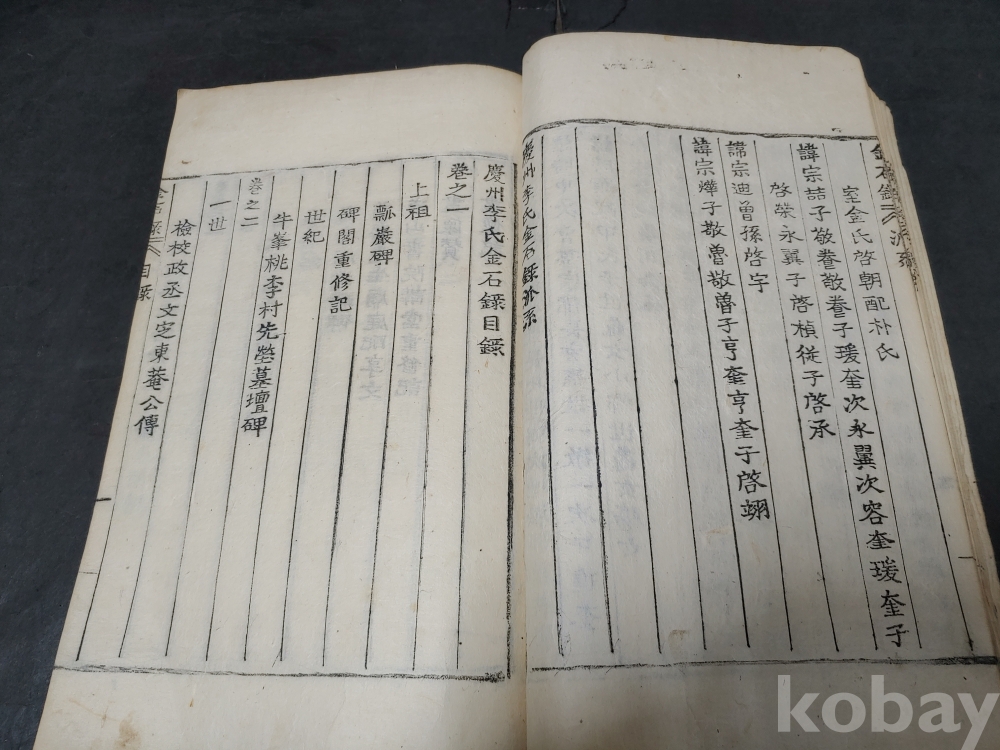 室金氏啓朝配朴氏
諱宗喆子敬養敬養子瑗奎次永翼次容奎瑗奎子
啓榮永翼子啓楨從子啓承
諱宗迪曾孫啓宇
諱宗燁子敬魯敬魯子亨奎亨奎子啓翊
慶州李氏金石錄派系
慶州李氏金石錄目錄
卷之一
上祖
瓢巖碑
碑閣重修記
世紀
牛峯桃李村先塋墓壇碑
卷之二
一世
檢校政丞文定東菴公傳
金石錄 目錄
kobay